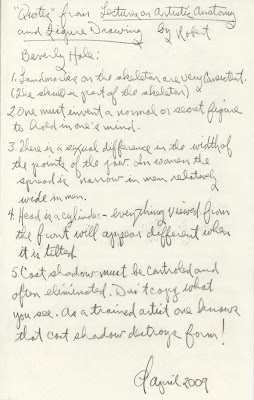 "Quotes" from Lectures on Artistic Anatomy
and Figure Drawing by Robert
Beverly Hale:
1. Landmarks on the skeleton are very consistent.
(The skull is part of the skeleton)
2 One must invent a normal or secret figure
to hold in one's mind.
3. There is a sexual difference in the width of
the points of the feet. In women the
spread is narrow in men relatively
wide in men.
4 Head is a cylinder - everything viewed from
the front will appear different when
it is tilted
5 Cast shadow must be controled and
often eliminated. Don't copy what
you see. As a trained artist one knows
that cast shadow destroys form!
april 2009